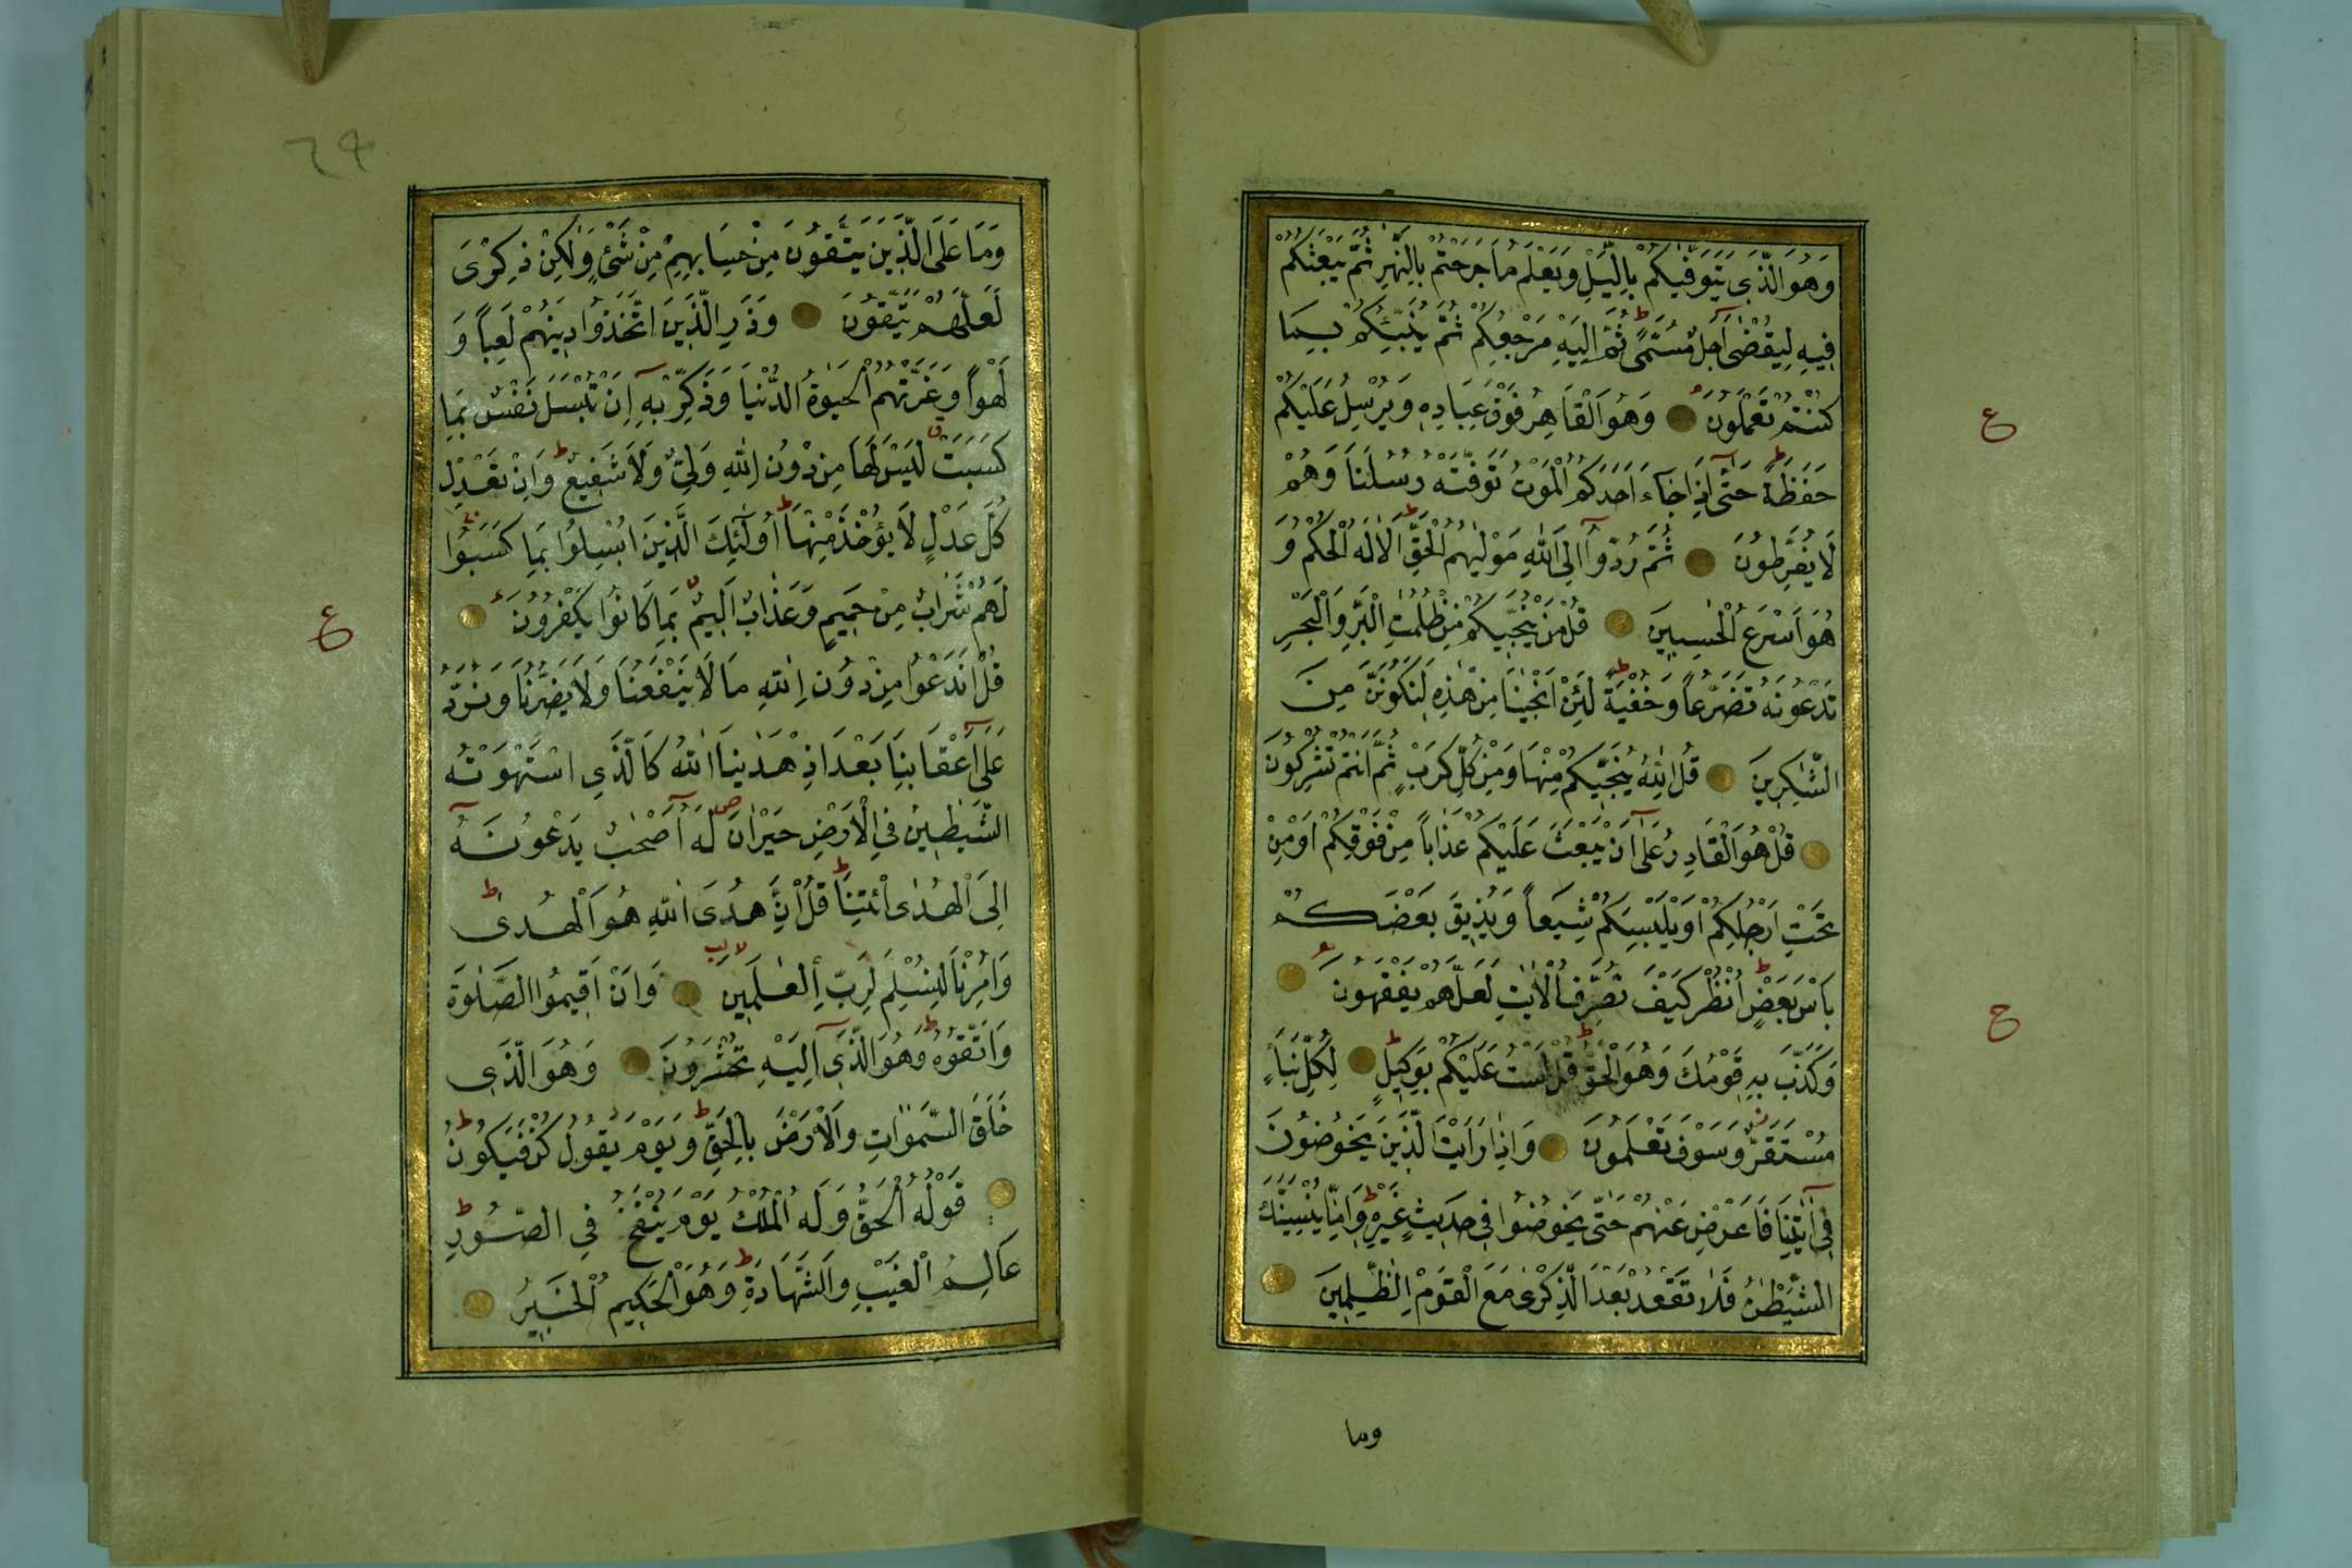 وَهُوَ الَّذِى يَتَوَفّٰيكُمْ بِالَّيْلِ وَيَعْلَمُ مَا جَرَحْتُمْ بِالنَّهَارِ ثُمَّ يَبْعَثُكُمْ
فِيهِ لِيُقْضٰى اَجَلٌ مُسَمًّى ثُمَّ اِلَيْهِ مَرْجِعُكُمْ ثُمَّ يُنَبِّئُكُمْ بِمَا
كُنْتُمْ تَعْمَلُونَ وَهُوَ الْقَاهِرُ فَوْقَ عِبَادِهِ وَيُرْسِلُ عَلَيْكُمْ
ع
حَفَظَةً حَتّٰى اِذَا جَاءَ اَحَدَكُمُ الْمَوْتُ تَوَفَّتْهُ رُسُلُنَا وَهُمْ
لَا يُفَرِّطُونَ ثُمَّ رُدُّوا اِلَى اللّٰهِ مَوْلٰيهُمُ الْحَقِّ اَلَا لَهُ الْحُكْمُ وَ
هُوَ اَسْرَعُ الْحٰسِبِينَ قُلْ مَنْ يُنَجِّيكُمْ مِنْ ظُلُمٰتِ الْبَرِّ وَالْبَحْرِ
تَدْعُونَهُ تَضَرُّعاً وَخُفْيَةً لَئِنْ اَنْجٰينَا مِنْ هٰذِهِ لَنَكُونَنَّ مِنَ
الشّٰكِرِينَ قُلِ اللّٰهُ يُنَجِّيكُمْ مِنْهَا وَمِنْ كُلِّ كَرْبٍ ثُمَّ اَنْتُمْ تُشْرِكُونَ
قُلْ هُوَ الْقَادِرُ عَلٰى اَنْ يَبْعَثَ عَلَيْكُمْ عَذَاباً مِنْ فَوْقِكُمْ اَوْ مِنْ
تَحْتِ اَرْجُلِكُمْ اَوْ يَلْبِسَكُمْ شِيَعاً وَيُذِيقَ بَعْضَكُمْ
بَأْسَ بَعْضٍ اُنْظُرْ كَيْفَ نُصَرِّفُ الْاٰيٰتِ لَعَلَّهُمْ يَفْقَهُونَ
ح
وَكَذَّبَ بِهِ قَوْمُكَ وَهُوَ الْحَقُّ قُلْ لَسْتُ عَلَيْكُمْ بِوَكِيلٍ لِكُلِّ نَبَأٍ
مُسْتَقَرٌّ وَسَوْفَ تَعْلَمُونَ وَاِذَا رَاَيْتَ الَّذِينَ يَخُوضُونَ
فِى اٰيٰتِنَا فَاَعْرِضْ عَنْهُمْ حَتّٰى يَخُوضُوا فِى حَدِيثٍ غَيْرِهِ وَاِمَّا يُنْسِيَنَّكَ
الشَّيْطٰنُ فَلَا تَقْعُدْ بَعْدَ الذِّكْرٰى مَعَ الْقَوْمِ الظّٰلِمِينَ
وما
وَمَا عَلَى الَّذِينَ يَتَّقُونَ مِنْ حِسَابِهِمْ مِنْ شَىْءٍ وَلٰكِنْ ذِكْرٰى
لَعَلَّهُمْ يَتَّقُونَ وَذَرِ الَّذِينَ اتَّخَذُوا دِينَهُمْ لَعِباً وَ
لَهْواً وَغَرَّتْهُمُ الْحَيٰوةُ الدُّنْيَا وَذَكِّرْ بِهِ اَنْ تُبْسَلَ نَفْسٌ بِمَا
كَسَبَتْ لَيْسَ لَهَا مِنْ دُونِ اللّٰهِ وَلِىٌّ وَلَا شَفِيعٌ وَاِنْ تَعْدِلْ
كُلَّ عَدْلٍ لَا يُؤْخَذْ مِنْهَا اُولٰئِكَ الَّذِينَ اُبْسِلُوا بِمَا كَسَبُوا
لَهُمْ شَرَابٌ مِنْ حَمِيمٍ وَعَذَابٌ اَلِيمٌ بِمَا كَانُوا يَكْفُرُونَ
ع
قُلْ اَنَدْعُوا مِنْ دُونِ اللّٰهِ مَا لَا يَنْفَعُنَا وَلَا يَضُرُّنَا وَنُرَدُّ
عَلٰى اَعْقَابِنَا بَعْدَ اِذْ هَدٰينَا اللّٰهُ كَالَّذِى اسْتَهْوَتْهُ
الشَّيٰطِينُ فِى الْاَرْضِ حَيْرَانَ لَهُ اَصْحٰبٌ يَدْعُونَهُ
اِلَى الْهُدٰى ائْتِنَا قُلْ اِنَّ هُدَى اللّٰهِ هُوَ الْهُدٰى
وَاُمِرْنَا لِنُسْلِمَ لِرَبِّ الْعٰلَمِينَ وَاَنْ اَقِيمُوا الصَّلٰوةَ
وَاتَّقُوهُ وَهُوَ الَّذِى اِلَيْهِ تُحْشَرُونَ وَهُوَ الَّذِى
خَلَقَ السَّمٰوَاتِ وَالْاَرْضَ بِالْحَقِّ وَيَوْمَ يَقُولُ كُنْ فَيَكُونُ
قَوْلُهُ الْحَقُّ وَلَهُ الْمُلْكُ يَوْمَ يُنْفَخُ فِى الصُّورِ
عَالِمُ الْغَيْبِ وَالشَّهَادَةِ وَهُوَ الْحَكِيمُ الْخَبِيرُ